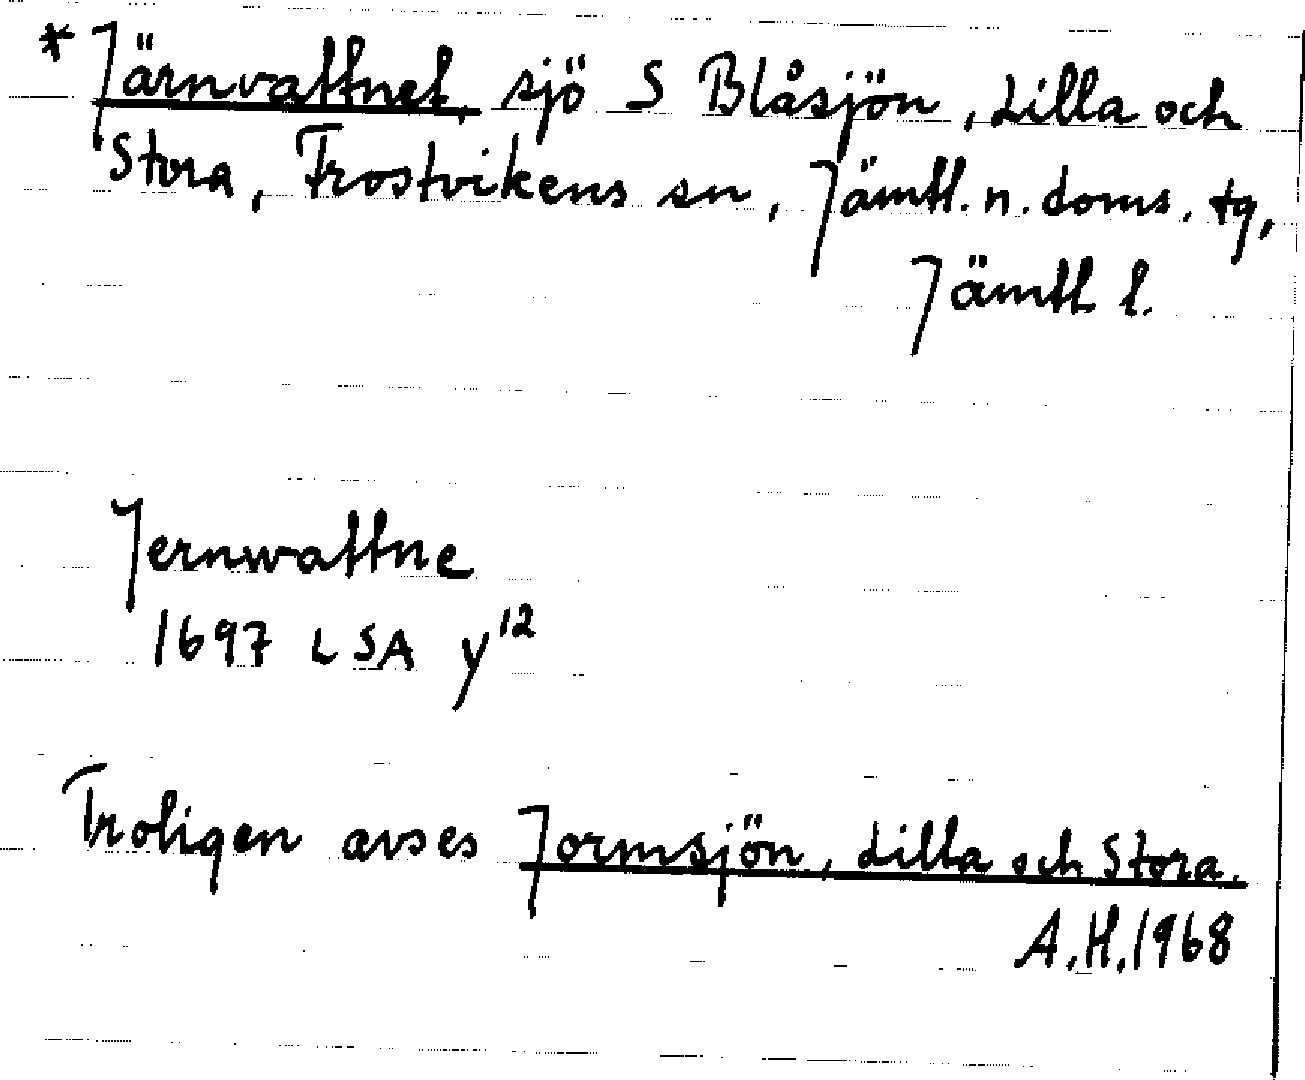 * Järnvattnet, sjö S Blåsjön, Lilla och
Stora, Frostvikens sn, Jämtl. n. doms. tg,
Jämtl l.
Jernwattne
1697 LSA y¹²
Troligen avses Jormsjön, Lilla och Stora.
A.H. 1968